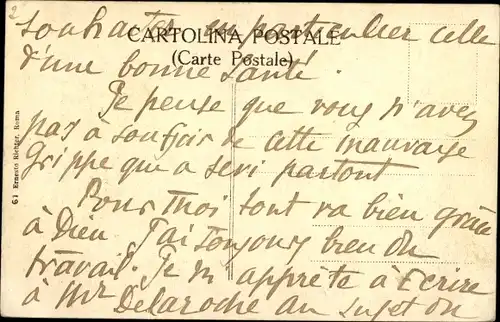 2
souhaiter en particulier celle
CARTOLINA POSTALE
(Carte Postale)
d'une bonne santé.
Je pense que vous n'avez
pas à souffrir de cette mauvaise
Grippe que a sévi partout
Pour moi tout va bien grâce
à Dieu. J'ai toujours bien du
travail. Je m'apprête à Écrire
à Mr Delaroche au sujet du
61 Ernesto Richter, Roma